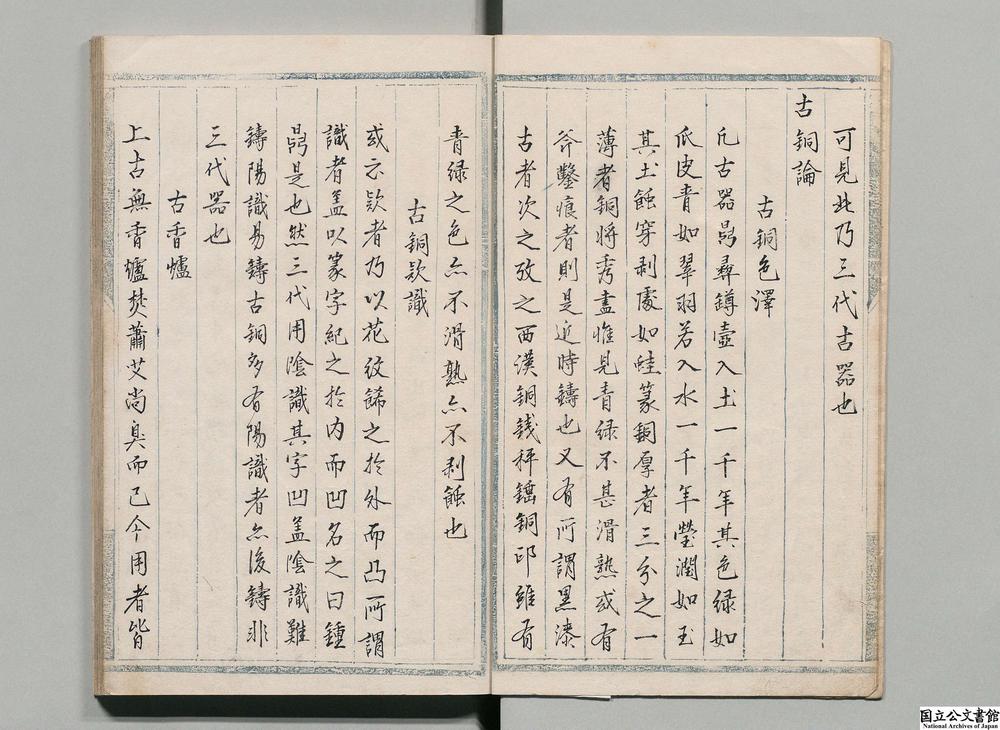 可見此乃三代古器也
古銅論
古銅色澤
凢古器鼎彝罇壺入土一千年其色緑如
瓜皮青如翠羽若入水一千年瑩潤如玉
其土蝕穿剥處如蛙篆銅厚者三分之一
薄者銅將秀盡惟見青緑不甚滑熟或有
斧鑿痕者則是近時鑄也又有所謂黒漆
古者次之攷之西漢銅錢秤錘銅印雖有
青緑之色亦不滑熟亦不剥蝕也
古銅欵識
或云欵者乃以花紋餙之於外而凸所謂
識者盖以篆字紀之於内而凹名之曰鍾
鼎是也然三代用陰識其字凹盖陰識難
鑄陽識易鑄古銅多有陽識者亦後鑄非
三代器也
古香爐
上古無香爐焚蕭艾尚臭而已今用者皆
国立公文書館
National Archives of Japan